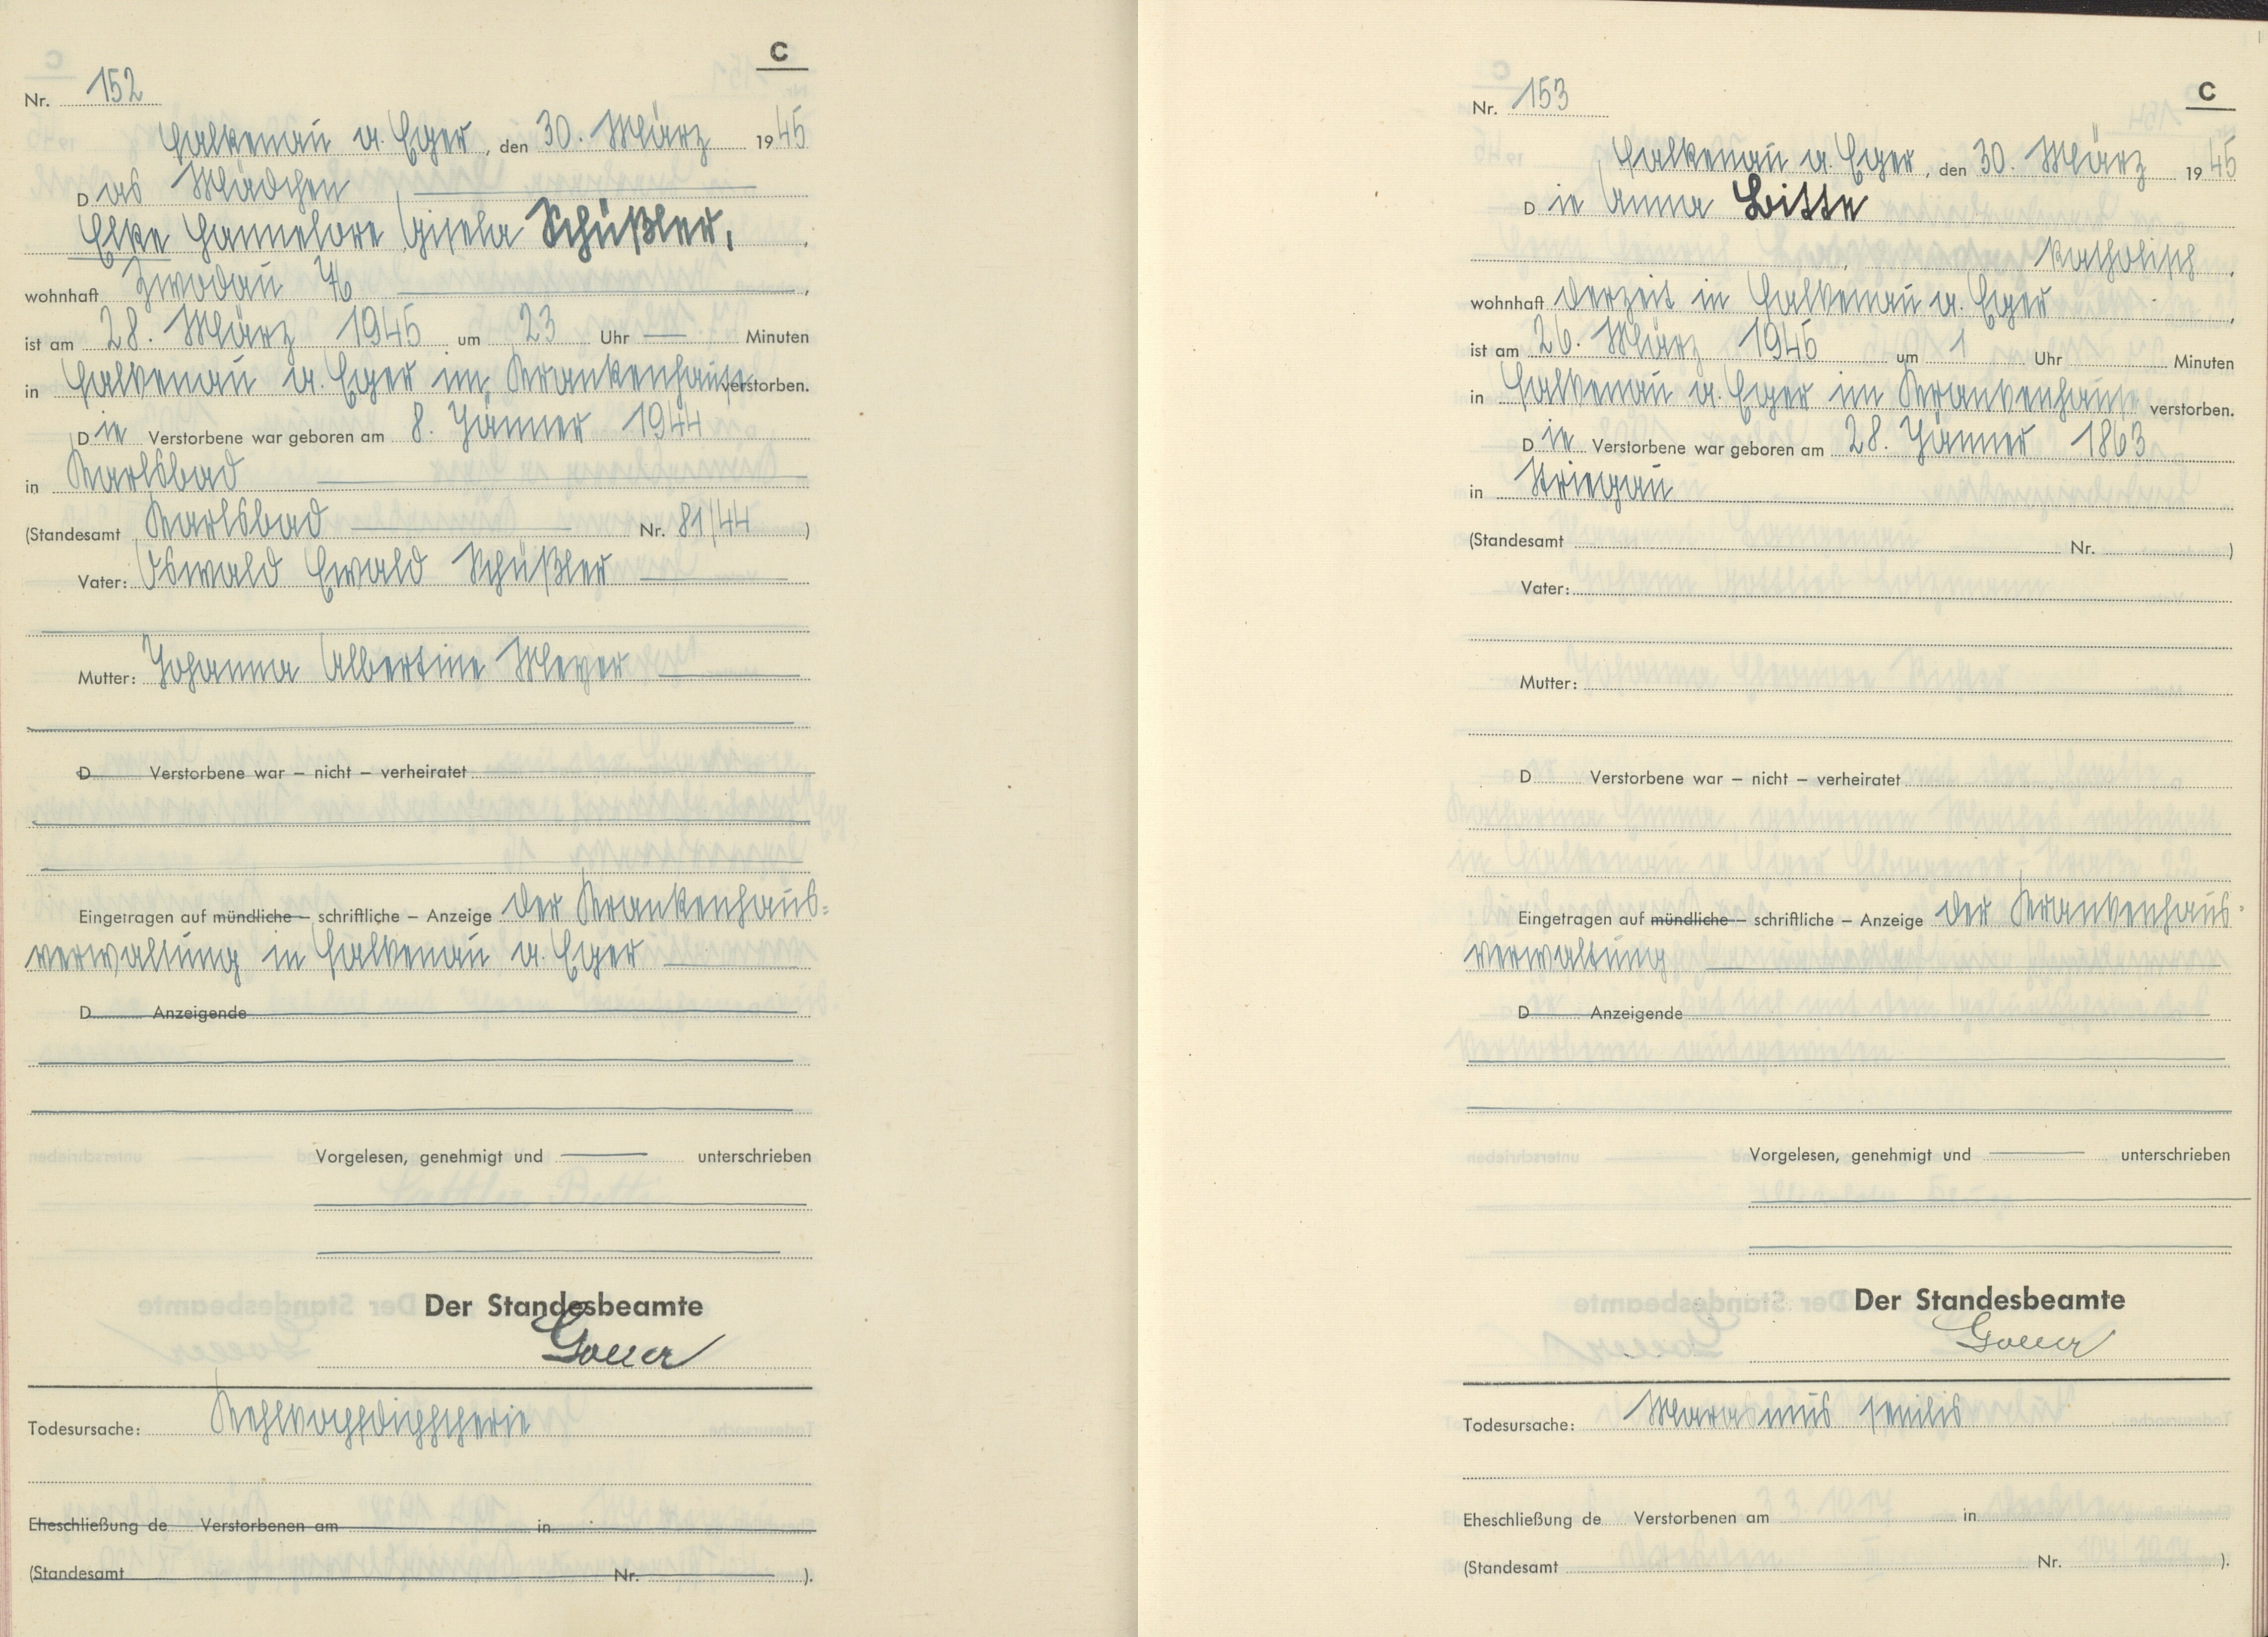 C
Nr. 152
Falkenau a. Eger, den 30. März 1945
Das Mädchen
Elke Hannelore Gisela Schüßler,
wohnhaft Zwodau ,
ist am 28. März 1945 um 23 Uhr — Minuten
in Falkenau a. Eger im Krankenhaus verstorben.
Die Verstorbene war geboren am 8. Jänner 1944
in Karlsbad
(Standesamt Karlsbad Nr. 81/44 )
Vater: Oswald Ewald Schüßler
Mutter: Johanna Albertine Meyer
D Verstorbene war – nicht – verheiratet
Eingetragen auf mündliche – schriftliche – Anzeige der Krankenhaus=
verwaltung in Falkenau a. Eger
D Anzeigende
Vorgelesen, genehmigt und — unterschrieben
Der Standesbeamte
Goller
Todesursache: Kehlkopfdiphtherie
Eheschließung de Verstorbenen am in
(Standesamt Nr. ).
C
Nr. 153
Falkenau a. Eger, den 30. März 1945
Die Anna Bitte
katholisch,
wohnhaft derzeit in Falkenau a. Eger ,
ist am 26. März 1945 um 1 Uhr Minuten
in Falkenau a. Eger im Krankenhaus verstorben.
Die Verstorbene war geboren am 28. Jänner 1863
in Striegau
(Standesamt Nr. )
Vater:
Mutter:
D Verstorbene war – nicht – verheiratet
Eingetragen auf mündliche – schriftliche – Anzeige der Krankenhaus=
verwaltung
D Anzeigende
Vorgelesen, genehmigt und — unterschrieben
Der Standesbeamte
Goller
Todesursache: Marasmus senilis
Eheschließung de Verstorbenen am in
(Standesamt Nr. ).